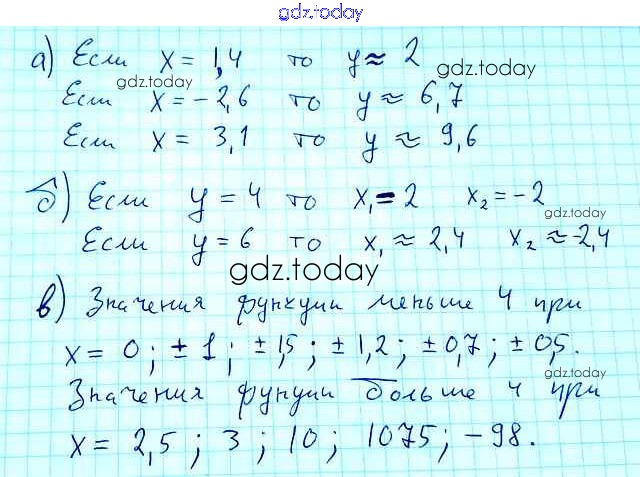 gdz.today
а) Если x = 1,4 то y ≈ 2
gdz.today gdz.today
Если x = -2,6 то y ≈ 6,7
Если x = 3,1 то y ≈ 9,6
б) Если y = 4 то x₁ = 2 x₂ = -2
gdz.today
Если y = 6 то x₁ ≈ 2,4 x₂ ≈ -2,4
gdz.today
в) Значения функции меньше 4 при
x = 0; ±1; ±1,5; ±1,2; ±0,7; ±0,5.
gdz.today
Значения фунуции больше 4 при
x = 2,5; 3; 10; 1075; -98.